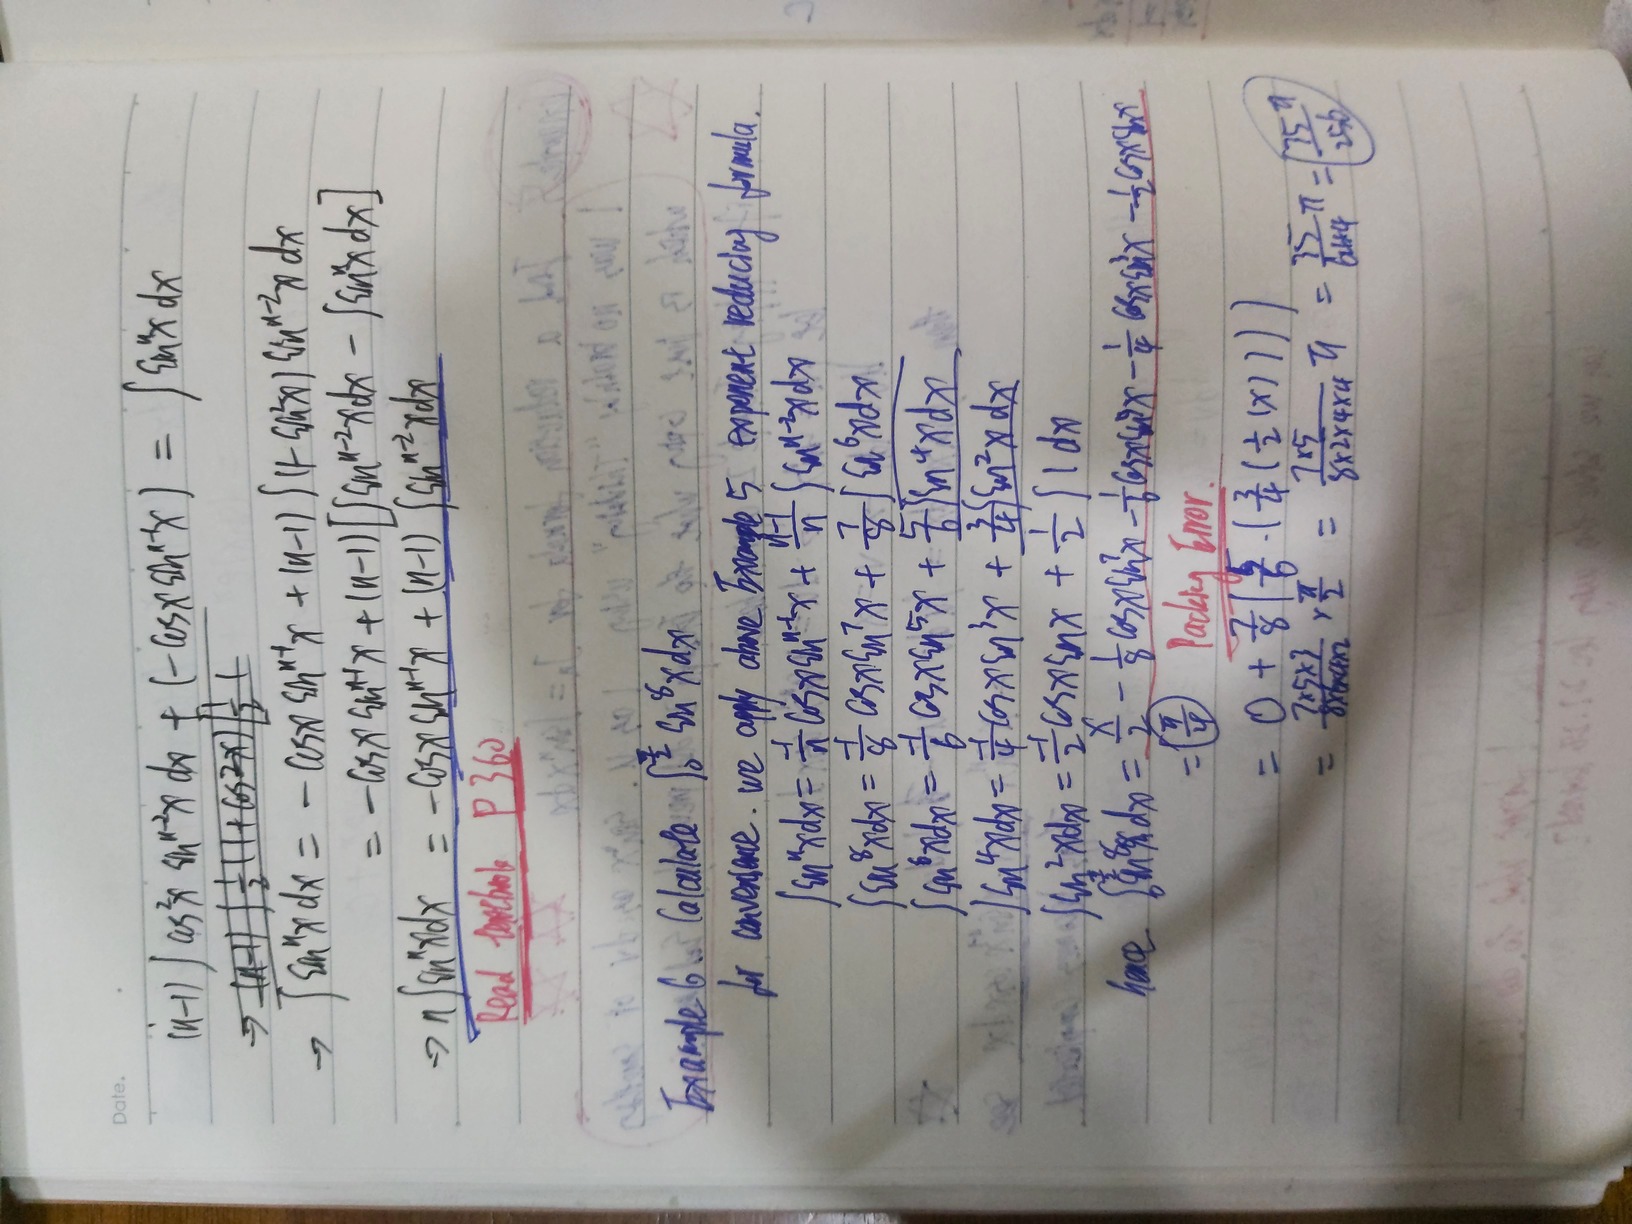 Date.
(n-1) ∫ cos²x sinⁿ⁻²x dx + (-cosx sinⁿ⁻¹x) = ∫ sinⁿx dx
→ (n-1) ∫ 1/2 (1+cos2x) [1/2 (
→ ∫ sinⁿx dx = - cosx sinⁿ⁻¹x + (n-1) ∫ (1-sin²x) sinⁿ⁻²x dx
= -cosx sinⁿ⁻¹x + (n-1) [∫ sinⁿ⁻²x dx - ∫ sinⁿx dx]
→ n ∫ sinⁿx dx = -cosx sinⁿ⁻¹x + (n-1) ∫ sinⁿ⁻²x dx
Read textbook P360
Example 6. Calculate ∫₀^(π/2) sin⁸x dx
for convenience. we apply above Example 5 exponent reducing formula.
∫ sinⁿx dx = -1/n cosx sinⁿ⁻¹x + n-1/n ∫ sinⁿ⁻²x dx
∫ sin⁸x dx = -1/8 cosx sin⁷x + 7/8 ∫ sin⁶x dx.
∫ sin⁶x dx = -1/6 cosx sin⁵x + 5/6 ∫ sin⁴x dx
∫ sin⁴x dx = -1/4 cosx sin³x + 3/4 ∫ sin²x dx
∫ sin²x dx = -1/2 cosx sinx + 1/2 ∫ 1 dx
hence ∫₀^(π/2) sin⁸x dx = x/2 - 1/8 cosx sin⁷x - 1/6 cosx sin⁵x - 1/4 cosx sin³x - 1/2 cosx sinx
= π/4 Packing Error.
= 0 + 7/8 (5/6 · (3/4 (1/2 (x))))
= 7×5×3/8×6×4×2 × π/2 = 7×5/8×2×4×4 π = 35/64×4 π = 35π/256